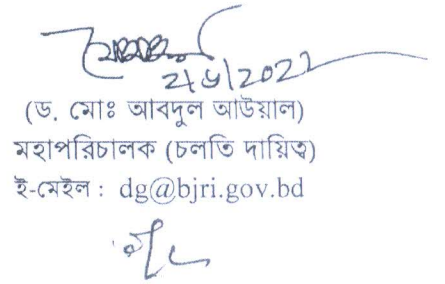 (ড. মোঃ আবদুল আউয়াল)
মহাপরিচালক (চলতি দায়িত্ব)
ই-মেইল : dg@bjri.gov.bd